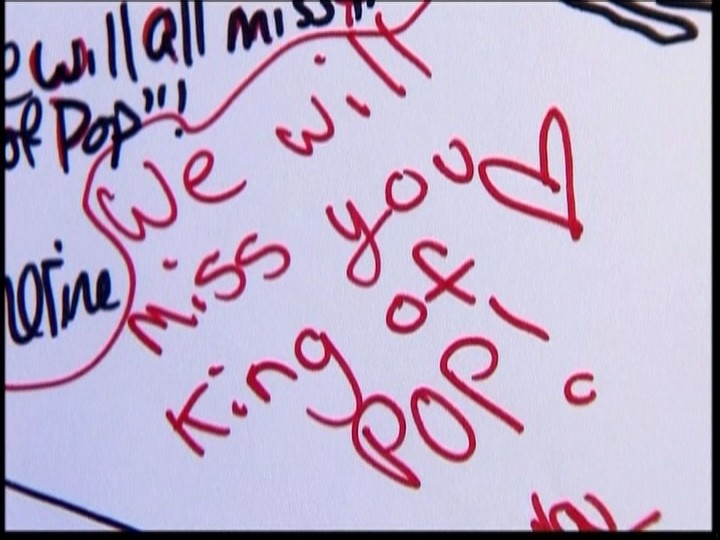 will all miss
of Pop"!
We will
miss you
King of
POP!